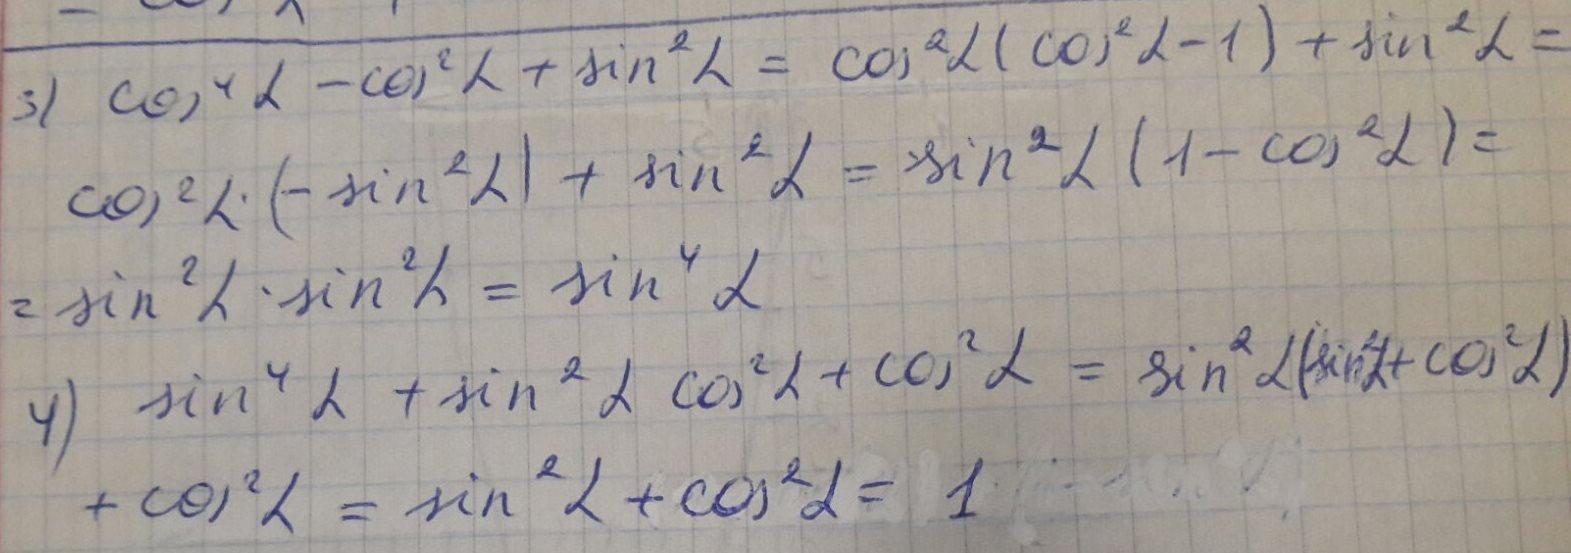 3) cos⁴α - cos²α + sin²α = cos²α(cos²α-1) + sin²α =
cos²α·(-sin²α) + sin²α = sin²α(1-cos²α) =
= sin²α·sin²α = sin⁴α
4) sin⁴α + sin²α cos²α + cos²α = sin²α(sin²α+cos²α)
+ cos²α = sin²α + cos²α = 1